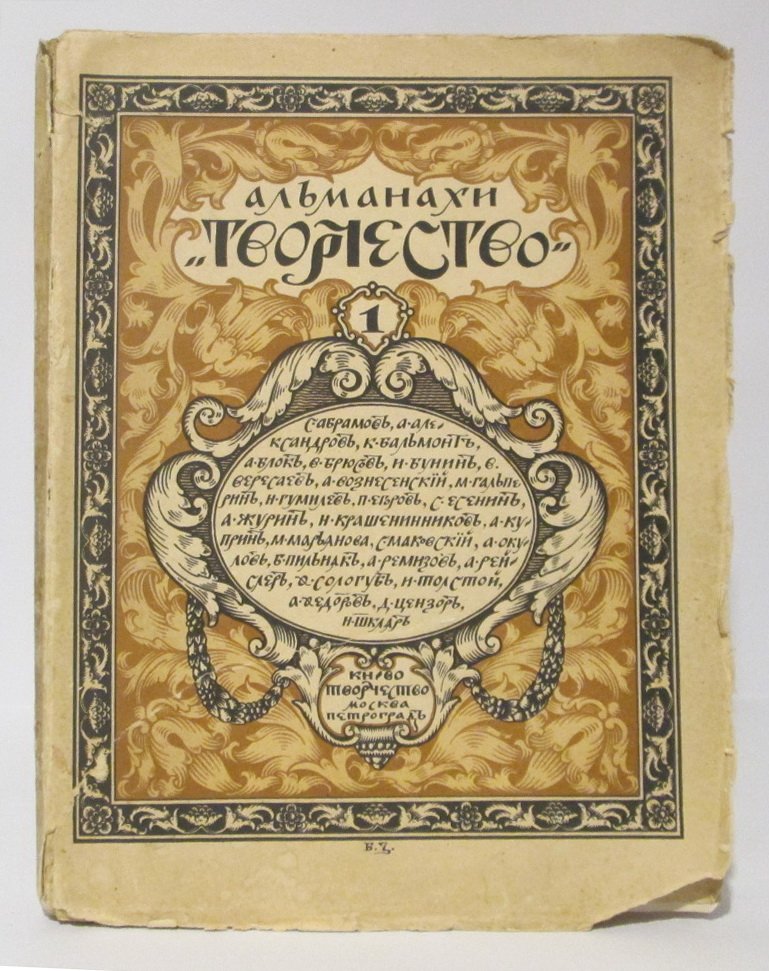 альманахи
„ТВОРЧЕСТВО“
1
С·АБРАМОВЪ, А·АЛЕ-
КСАНДРОВЪ, К·БАЛЬМОНТЪ,
А·БЛОКЪ, В·БРЮСОВЪ, И·БУНИНЪ, В.
ВЕРЕСАЕВЪ, А·ВОЗНЕСЕНСКІЙ, М·ГАЛЬПЕ-
РИНЪ, Н·ГУМИЛЕВЪ, П·ЕГОРОВЪ, С·ЕСЕНИНЪ,
А·ЖУРИНЪ, Н·КРАШЕНИННИКОВЪ, А·КУ-
ПРИНЪ, М·МАРЬЯНОВА, С·МАКОВСКІЙ, А·ОКУ-
ЛОВЪ, Б·ПИЛЬНЯКЪ, А·РЕМИЗОВЪ, А·РЕЙ-
СЛЕРЪ, Ѳ·СОЛОГУБЪ, И·ТОЛСТОЙ,
А·ѲЕДОРОВЪ, Д·ЦЕНЗОРЪ,
Н·ШКЛЯРЪ
КН-ВО
ТВОРЧЕСТВО
МОСКВА
ПЕТРОГРАДЪ
Б.Ц.